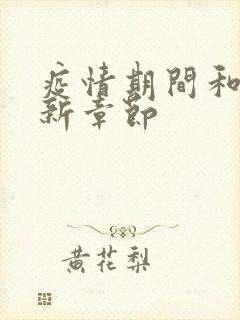 疫情期間和
新章節
黄花梨